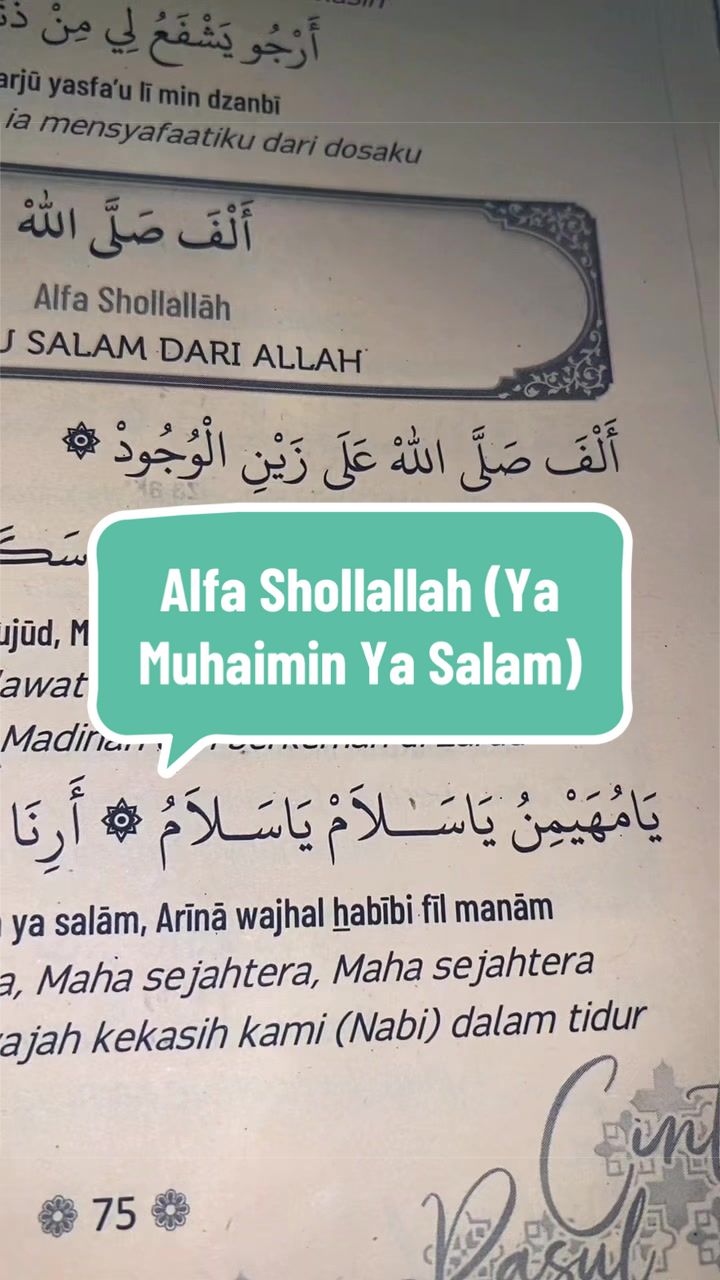 أَرْجُو يَشْفَعُ لِي مِنْ
arjū yasfa'u lī min dzanbī
ia mensyafaatiku dari dosaku
أَلْفَ صَلَّى اللهْ
Alfa Shollallāh
SALAM DARI ALLAH
أَلْفَ صَلَّى اللهْ عَلَى زَيْنِ الْوُجُودْ
Alfa Shollallah (Ya
Muhaimin Ya Salam)
يَامُهَيْمِنُ يَاسَــلاَمْ يَاسَــلاَمُ ۞ أَرِنَا
ya salām, Arīnā wajhal ẖabībi fīl manām
Maha sejahtera, Maha sejahtera
wajah kekasih kami (Nabi) dalam tidur
75
Rasul